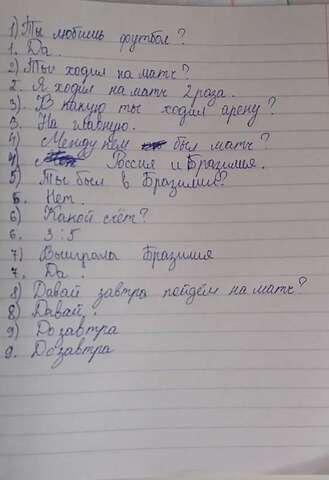 1) Ты любишь футбол?
1. Да.
2) Ты ходил на матч?
2. Я ходил на матч 2 раза.
3). В какую ты ходил арену?
3. На главную.
4) Между кем был матч?
4) Россия и Бразилия.
5) Ты был в Бразилии?
5. Нет.
6) Какой счёт?
6. 3:5
7) Выиграла Бразилия
7. Да.
8) Давай завтра пойдём на матч?
8) Давай.
9) До завтра
9. До завтра